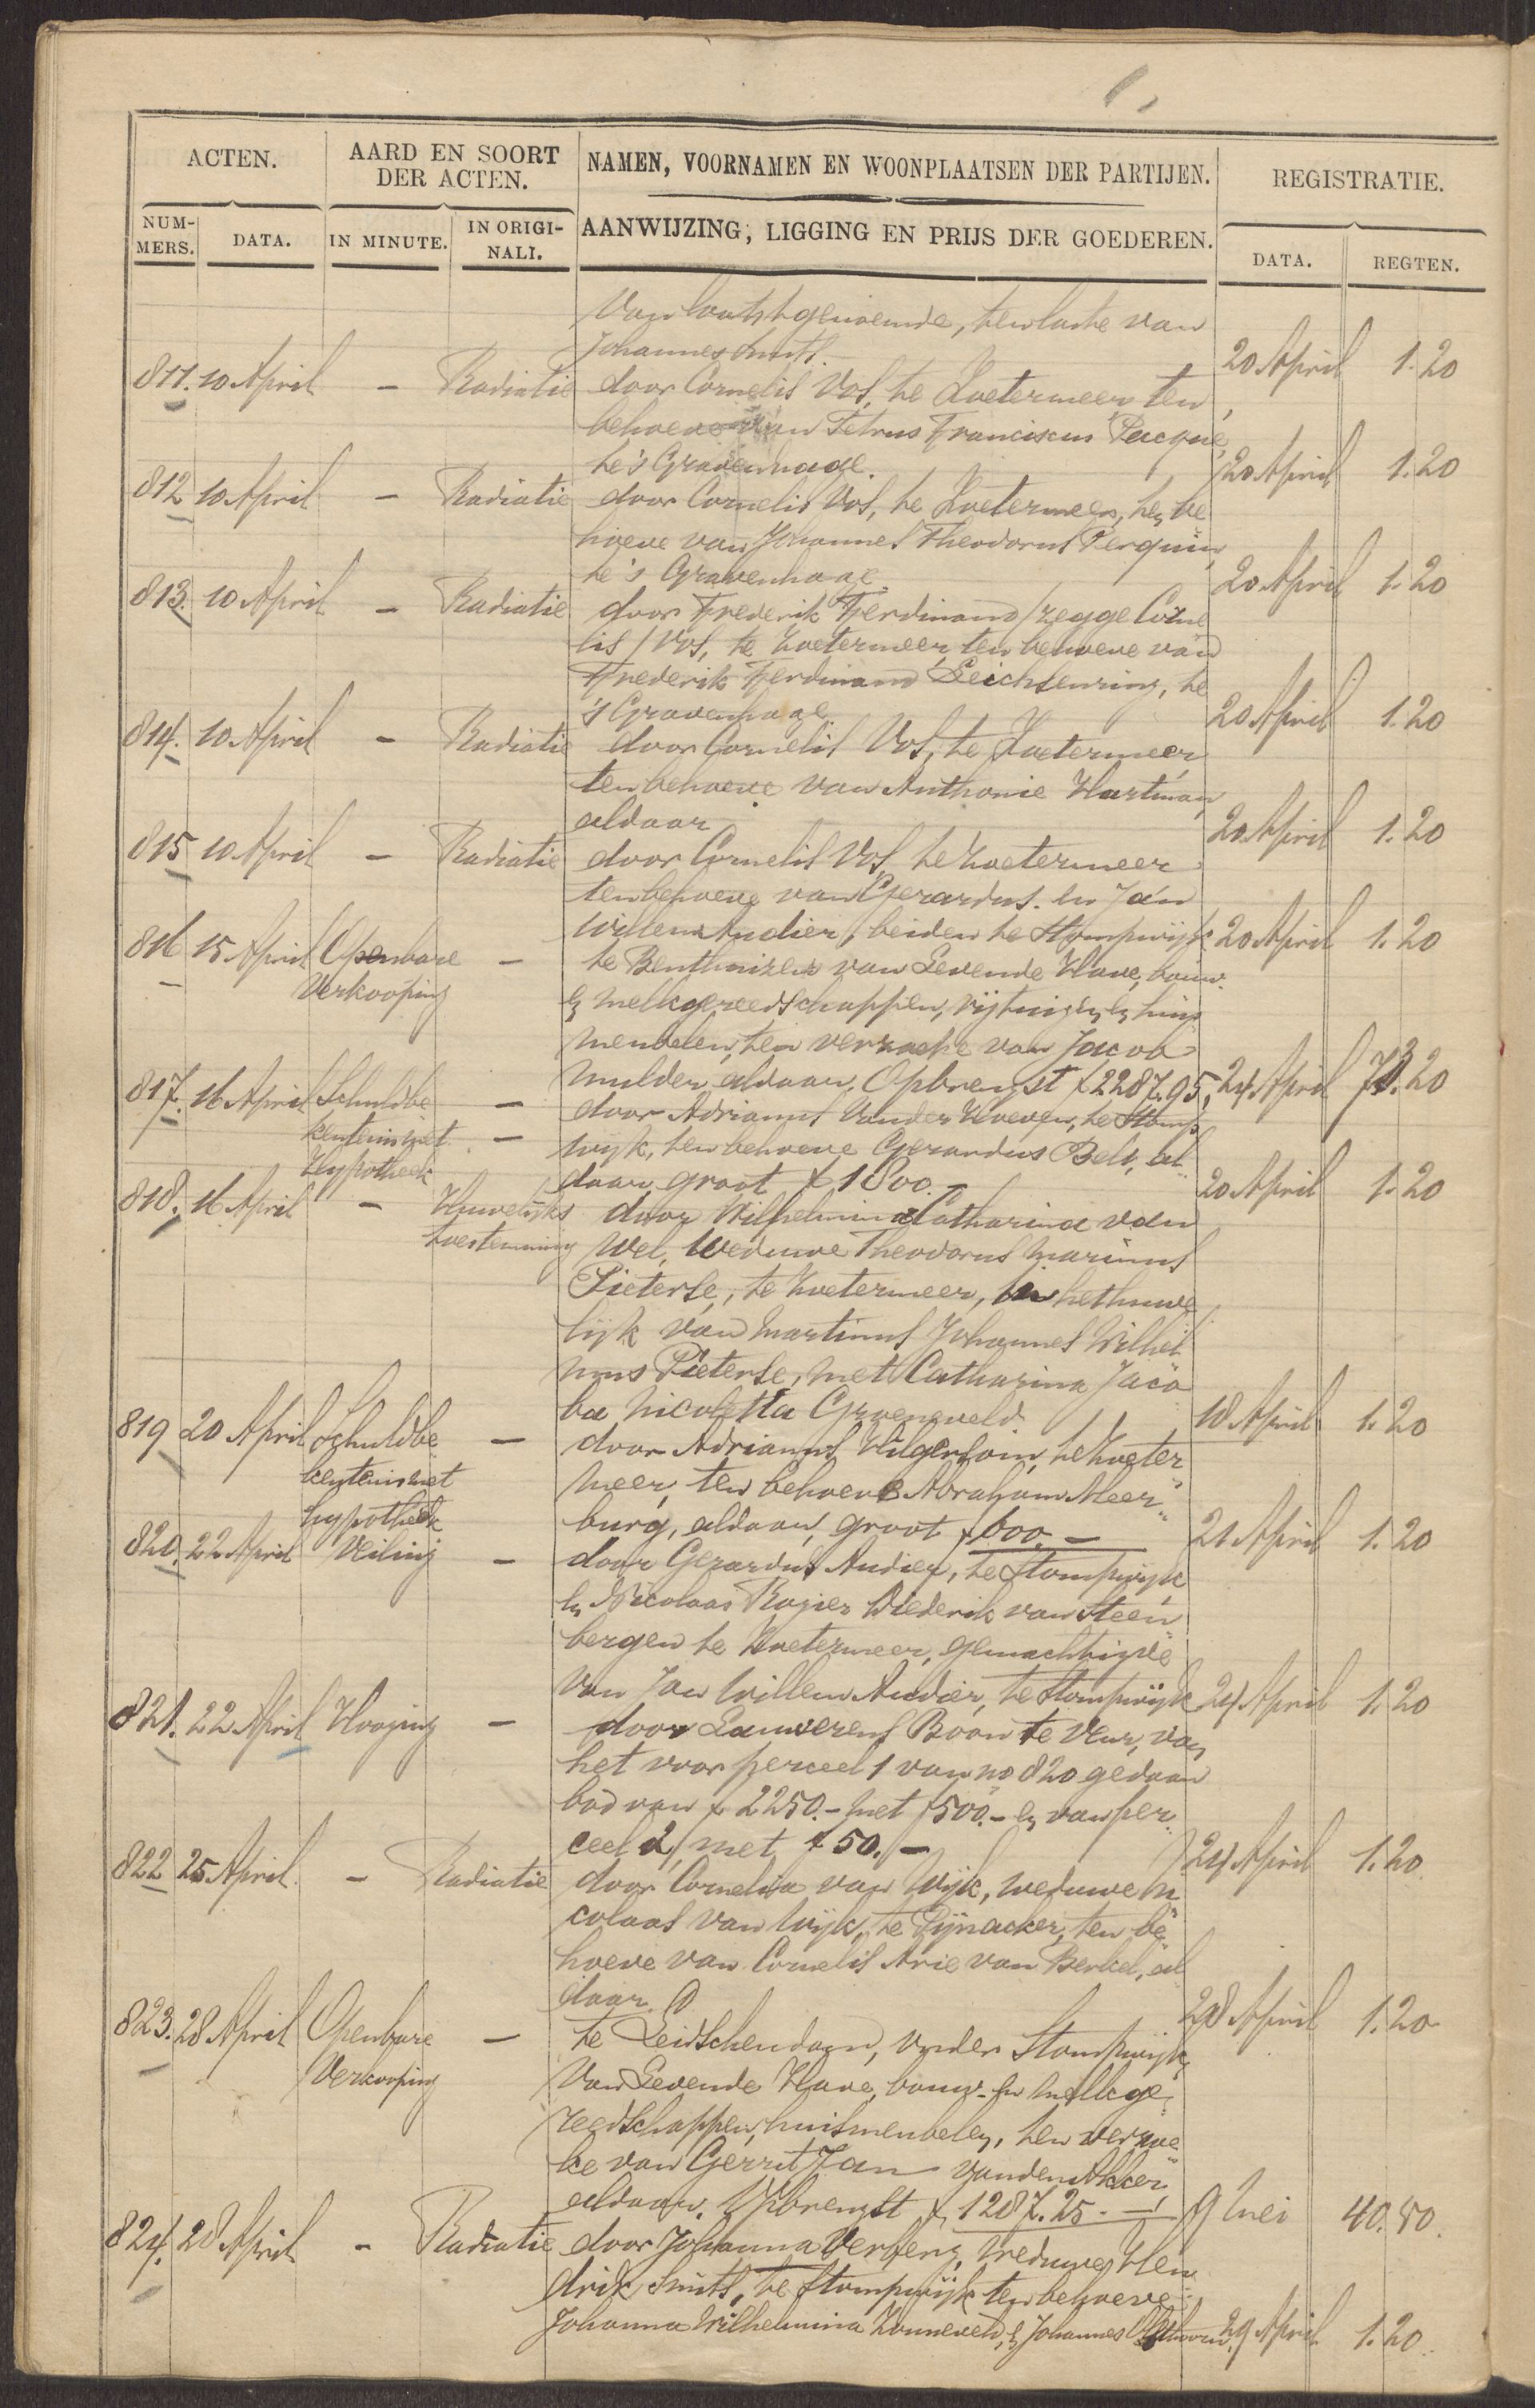 ACTEN.
AARD EN SOORT
DER ACTEN.
NAMEN, VOORNAMEN EN WOONPLAATSEN DER PARTIJEN.
REGISTRATIE.
NUM-
MERS.
DATA.
IN MINUTE.
IN ORIGI-
NALI.
AANWIJZING, LIGGING EN PRIJS DER GOEDEREN.
DATA.
REGTEN.
van laatstgenoemde, ten laste van
Johannes Smits. 20 April 1.20
811. 10 April – Radiatie door Cornelis Vos, te Zoetermeer ten
behoeve van Petrus Franciscus Pacqué,
te 's Gravenhage. 20 April 1.20
812 10 April – Radiatie door Cornelis Vos, te Zoetermeer, ten be
hoeve van Johannes Theodorus Perquin,
te 's Gravenhage. 20 April 1.20
813. 10 April – Radiatie door Frederik Ferdinand /zegge Corne
lis/ Vos, te Zoetermeer, ten behoeve van
Frederik Ferdinand Leichsenring, te
's Gravenhage 20 April 1.20
814. 10 April – Radiatie door Cornelis Vos, te Zoetermeer
ten behoeve van Anthonie Hartman,
aldaar 20 April 1.20
815 10 April – Radiatie door Cornelis Vos, te Zoetermeer
ten behoeve van Gerardus en Jan
Willem Andier, beiden te Stompwijk 20 April 1.20
816 15 April Openbare – te Benthuizen van Levende Have, bouw-
Verkooping en melkgereedschappen, rijtuigen en huis
meubelen, ten verzoeke van Jacob
Mulder, aldaar, Opbrengst f 2287.95, 24 April 73.20
817. 16 April Schuldbe – door Adrianus van der Hoeven, te Stomp
kentenis met – wijk, ten behoeve Gerardus Bels, al
Hypotheek daar, groot f 1800.– 20 April 1.20
818. 16 April – Huwelijks door Wilhelmina Catharina van
toestemming Wel, weduwe Theodorus Marinus
Pieterse, te Zoetermeer, tot het huwe
lijk van Martinus Johannes Wilhel
mus Pieterse, met Catharina Jaco
ba Nicoletta Groeneveld 18 April 1.20
819 20 April Schuldbe – door Adrianus Hilgersom, te Zoeter
kentenis met meer, ten behoeve Abraham Meer
hypotheek burg, aldaar, groot f 600.– 21 April 1.20
820. 22 April Veiling – door Gerardus Andier, te Stompwijk
en Nicolaas Rogier Diederik van Steen
bergen te Zoetermeer, gemachtigde
van Jan Willem Andier, te Stompwijk 24 April 1.20
821. 22 April Hooging – door Lauwerens Boon te Veur, van
het voor perceel 1 van no 820 gedaan
bod van f 2250.– met f 500.– en van per
ceel 2, met f 50.– 24 April 1.20
822 25 April. – Radiatie door Cornelia van Wijk, weduwe Ni
colaas van Wijk, te Pijnacker, ten be
hoeve van Cornelis Arie van Berkel, al
daar. 28 April 1.20
823. 28 April Openbare – te Leidschendam, onder Stompwijk,
Verkooping van Levende Have, bouw- en melkge
reedschappen, huismeubelen, ten verzoe
ke van Gerrit Jan van den Akker,
aldaar. Opbrengst f 1287.25.– 9 Mei 40.80.
824. 28 April – Radiatie door Johanna Verberg, weduwe Hen
drik Smits, te Stompwijk ten behoeve
Johanna Wilhelmina Zonneveld, en Johannes 29 April 1.20.